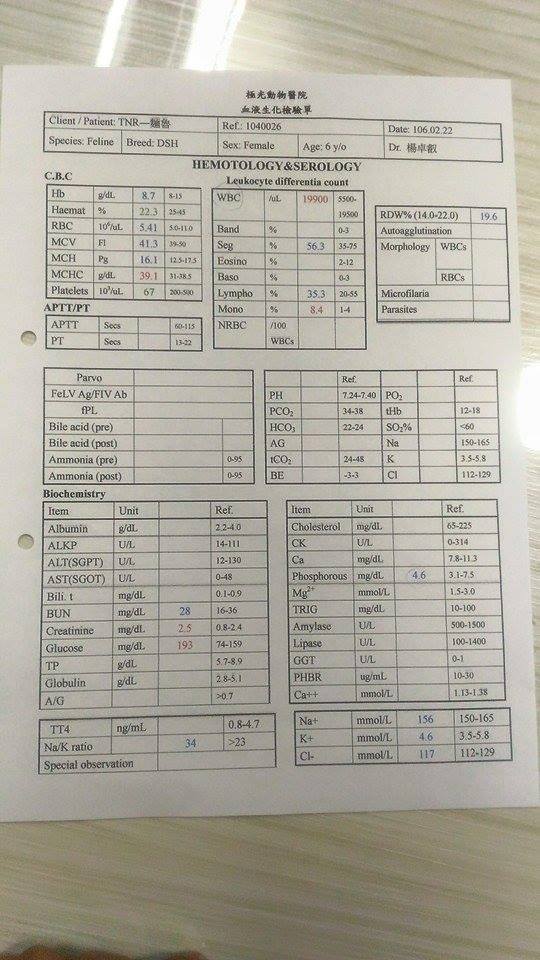 極光動物醫院
血液生化檢驗單
Client / Patient: TNR—麵魯 Ref.: 1040026 Date: 106.02.22
Species: Feline Breed: DSH Sex: Female Age: 6 y/o Dr. 楊卓叡
HEMOTOLOGY&SEROLOGY
C.B.C
Hb g/dL 8.7 8-15
Haemat % 22.3 25-45
RBC 10⁶/uL 5.41 5.0-11.0
MCV Fl 41.3 39-50
MCH Pg 16.1 12.5-17.5
MCHC g/dL 39.1 31-38.5
Platelets 10³/uL 67 200-500
APTT/PT
APTT Secs 60-115
PT Secs 13-22
Leukocyte differentia count
WBC /uL 19900 5500-19500
Band % 0-3
Seg % 56.3 35-75
Eosino % 2-12
Baso % 0-3
Lympho % 35.3 20-55
Mono % 8.4 1-4
NRBC /100 WBCs
RDW% (14.0-22.0) 19.6
Autoagglutination
Morphology WBCs
RBCs
Microfilaria
Parasites
Parvo
FeLV Ag/FIV Ab
fPL
Bile acid (pre)
Bile acid (post)
Ammonia (pre) 0-95
Ammonia (post) 0-95
Ref. Ref.
PH 7.24-7.40 PO₂
PCO₂ 34-38 tHb 12-18
HCO₃ 22-24 SO₂% <60
AG Na 150-165
tCO₂ 24-48 K 3.5-5.8
BE -3-3 Cl 112-129
Biochemistry
Item Unit Ref.
Albumin g/dL 2.2-4.0
ALKP U/L 14-111
ALT(SGPT) U/L 12-130
AST(SGOT) U/L 0-48
Bili. t mg/dL 0.1-0.9
BUN mg/dL 28 16-36
Creatinine mg/dL 2.5 0.8-2.4
Glucose mg/dL 193 74-159
TP g/dL 5.7-8.9
Globulin g/dL 2.8-5.1
A/G >0.7
Item Unit Ref.
Cholesterol mg/dL 65-225
CK U/L 0-314
Ca mg/dL 7.8-11.3
Phosphorous mg/dL 4.6 3.1-7.5
Mg²⁺ mmol/L 1.5-3.0
TRIG mg/dL 10-100
Amylase U/L 500-1500
Lipase U/L 100-1400
GGT U/L 0-1
PHBR ug/mL 10-30
Ca++ mmol/L 1.13-1.38
TT4 ng/mL 0.8-4.7
Na/K ratio 34 >23
Special observation
Na+ mmol/L 156 150-165
K+ mmol/L 4.6 3.5-5.8
Cl- mmol/L 117 112-129